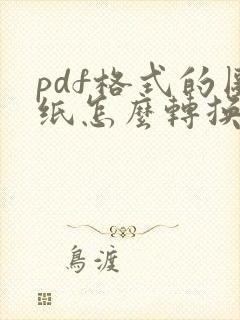 pdf格式的
纸怎麼轉換
鳥渡